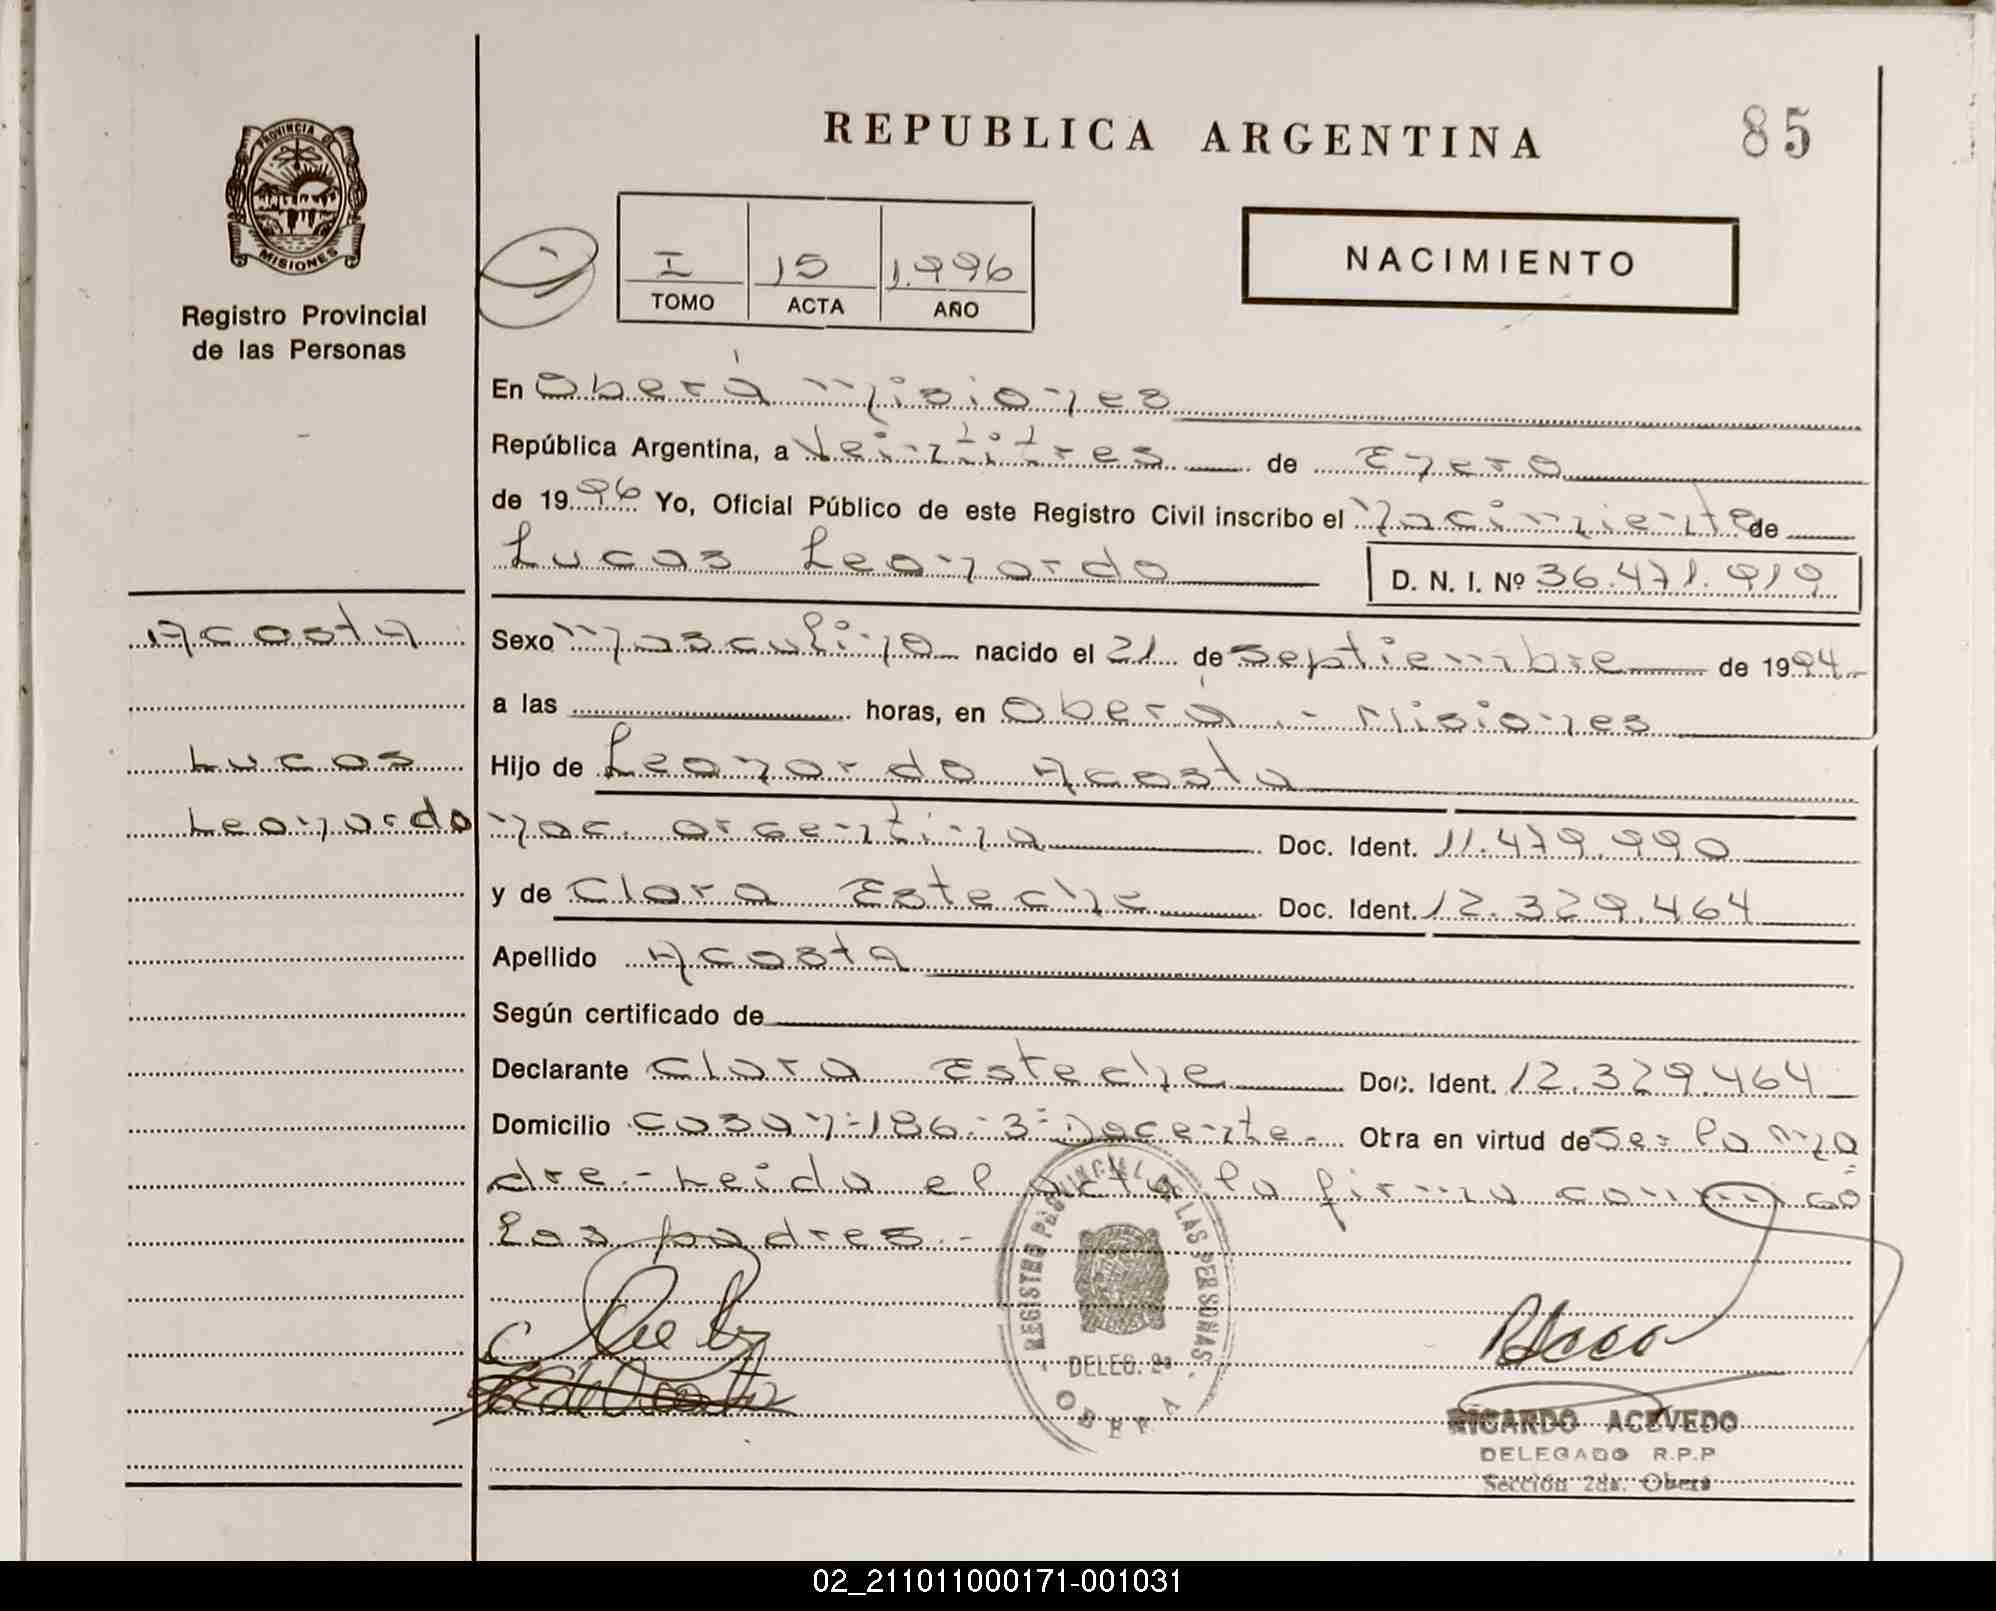 REPUBLICA ARGENTINA
85
PROVINCIA DE
MISIONES
Registro Provincial
de las Personas
I 15 1.996
TOMO ACTA AÑO
NACIMIENTO
En Oberá Misiones
República Argentina, a Veintitres de Enero
de 1996 Yo, Oficial Público de este Registro Civil inscribo el Nacimiento de
Lucas Leonardo
D. N. I. Nº 36.471.919
Acosta
Sexo Masculino nacido el 21 de Septiembre de 1994
a las horas, en Oberá - Misiones
Lucas
Hijo de Leonardo Acosta
Leonardo
nac. argentina Doc. Ident. 11.479.990
y de Clara Esteche Doc. Ident. 12.329.464
Apellido Acosta
Según certificado de
Declarante Clara Esteche Doc. Ident. 12.329.464
Domicilio Casa n=186-3= Docente. Obra en virtud de ser la ma
dre.- Leida el acta la firma conmigo
los padres.-
REGISTRO PROVINCIAL DE LAS PERSONAS
DELEG. 2a
OBERA
RICARDO ACEVEDO
DELEGADO R.P.P
Sección 2da. Oberá
02_211011000171-001031